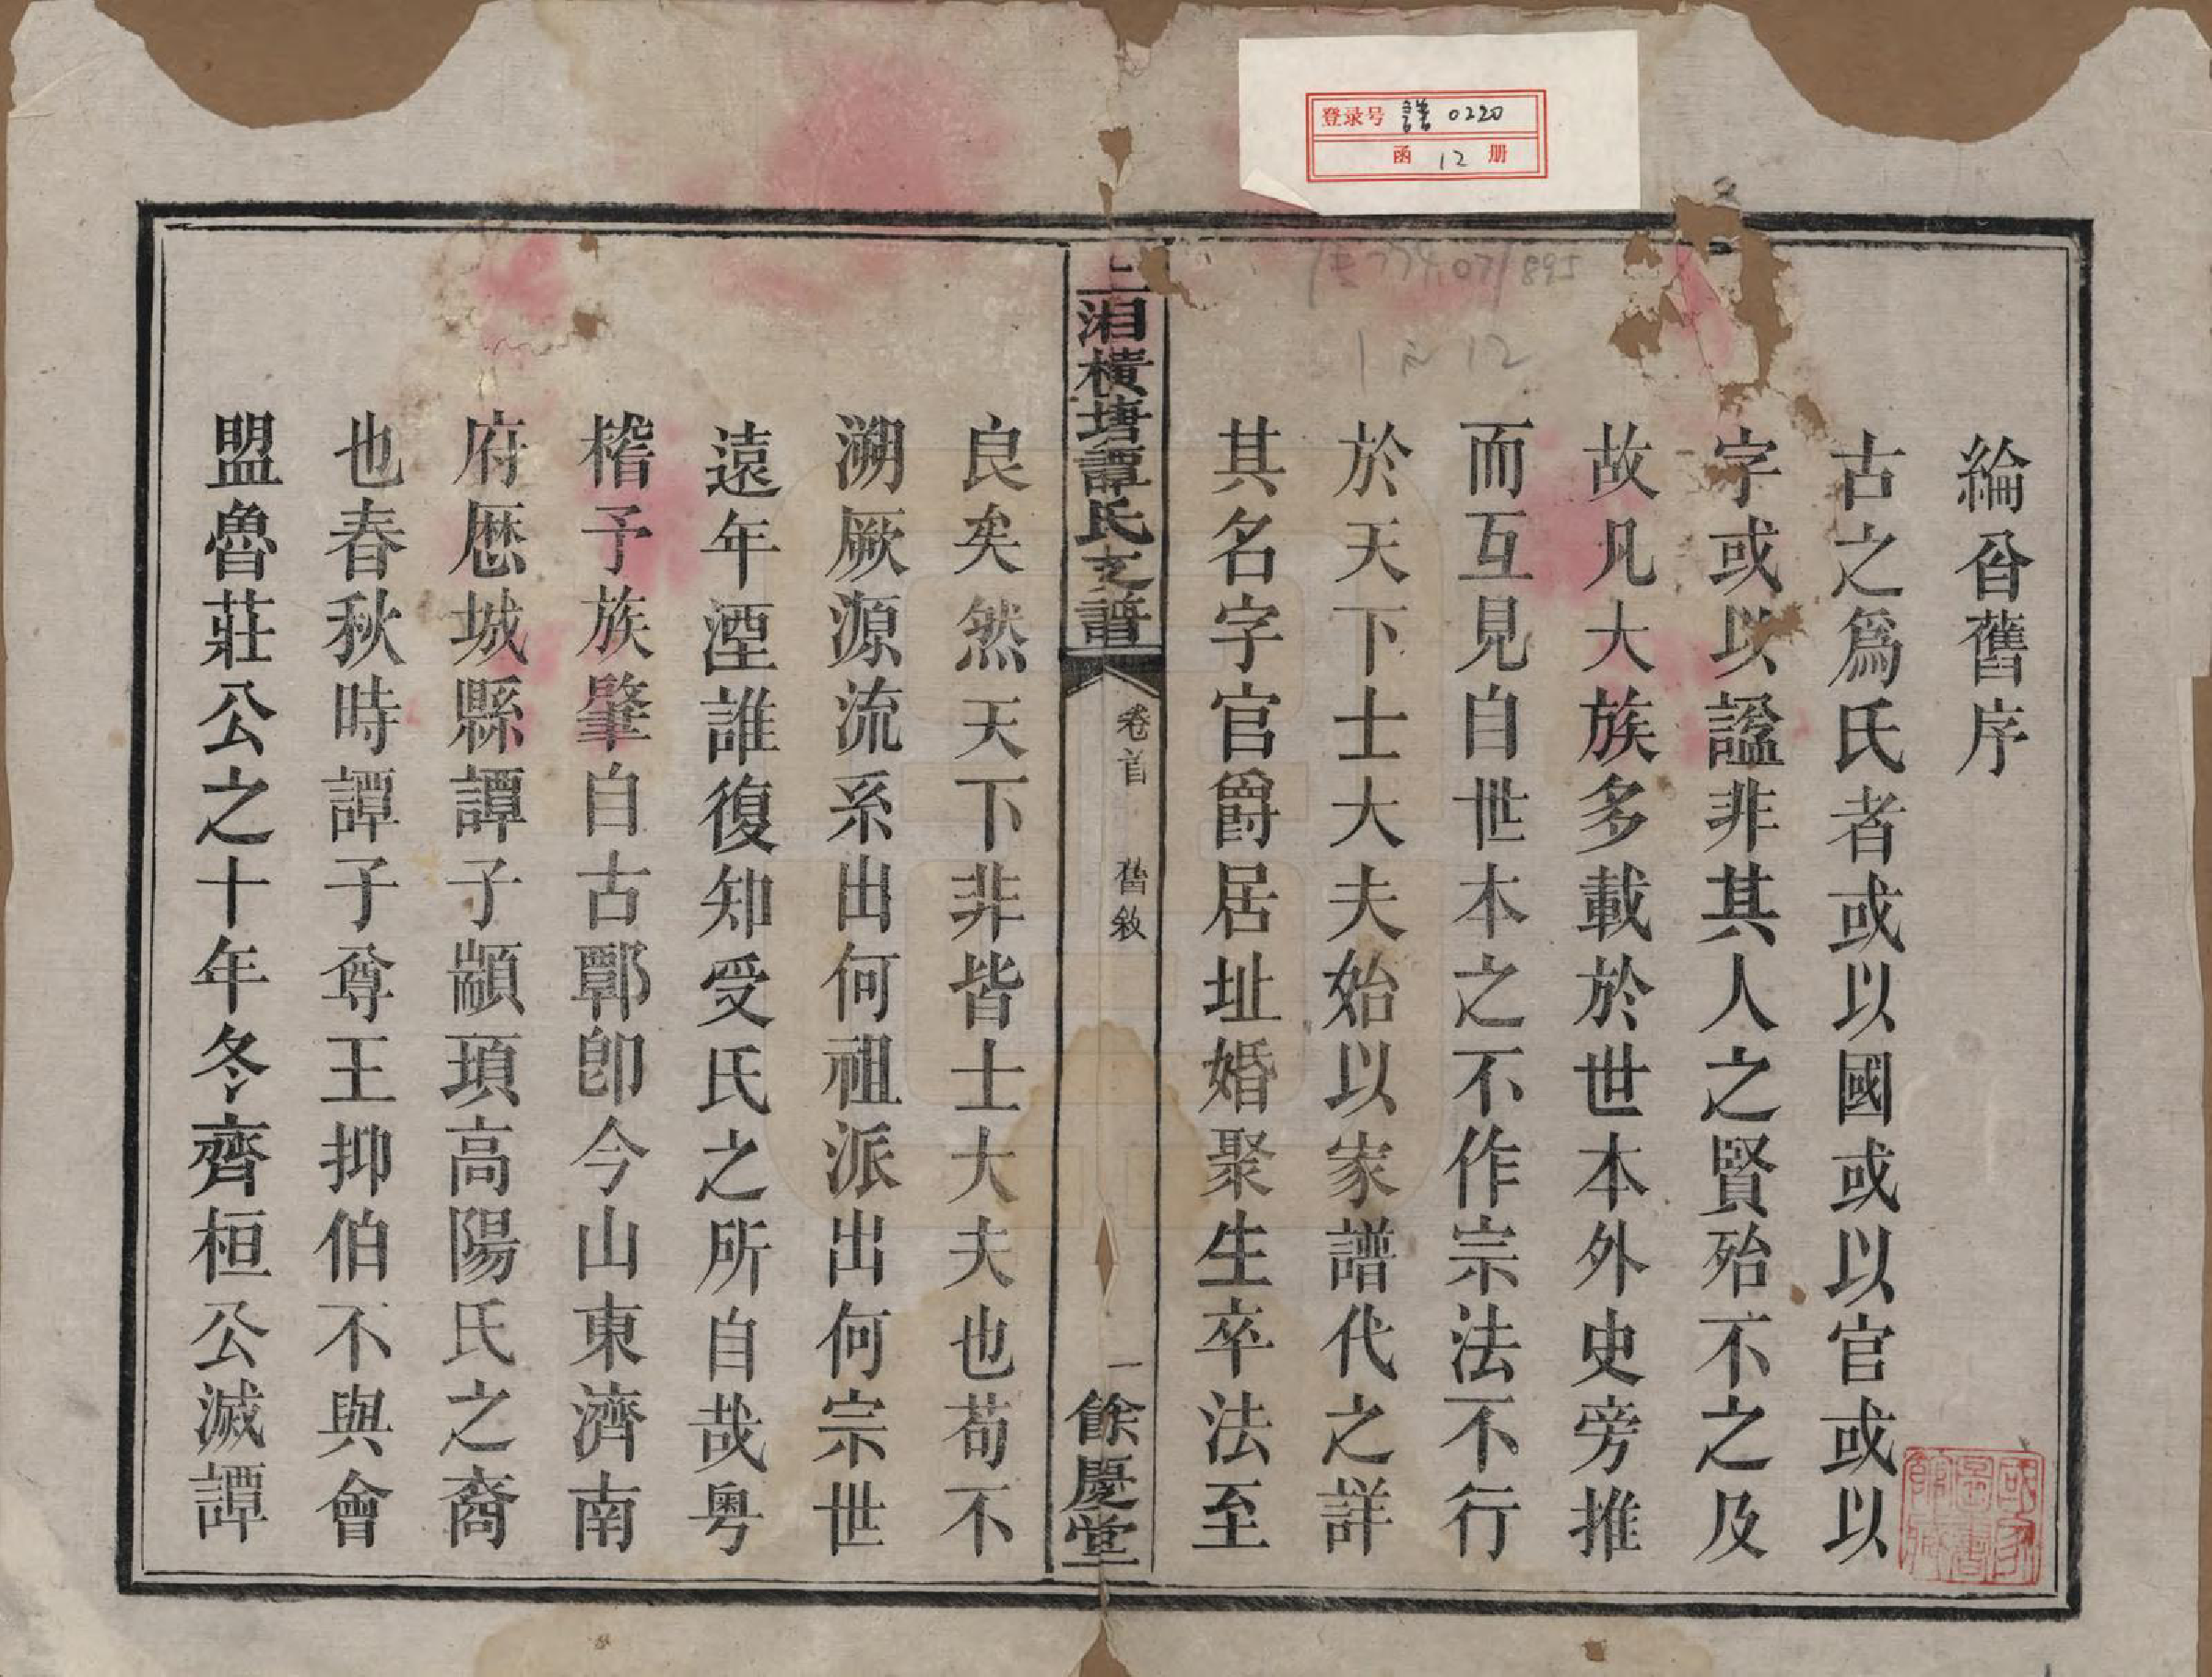 綸㕣舊序
古之爲氏者或以國或以官或以
字或以諡非其人之賢殆不之及
故凡大族多載於世本外史旁推
而互見自世本之不作宗法不行
於天下士大夫始以家譜代之詳
其名字官爵居址婚聚生卒法至
上湘橫塘譚氏支譜
卷首
舊敘
一
餘慶堂
良矣然天下非皆士大夫也苟不
溯厥源流系出何祖派出何宗世
遠年湮誰復知受氏之所自哉粤
稽予族肇自古鄲卽今山東濟南
府厯城縣譚子顓頊高陽氏之裔
也春秋時譚子尊王抑伯不與會
盟魯莊公之十年冬齊桓公滅譚
登录号 譜 0220
函 12 册
1 12
國家圖書館藏